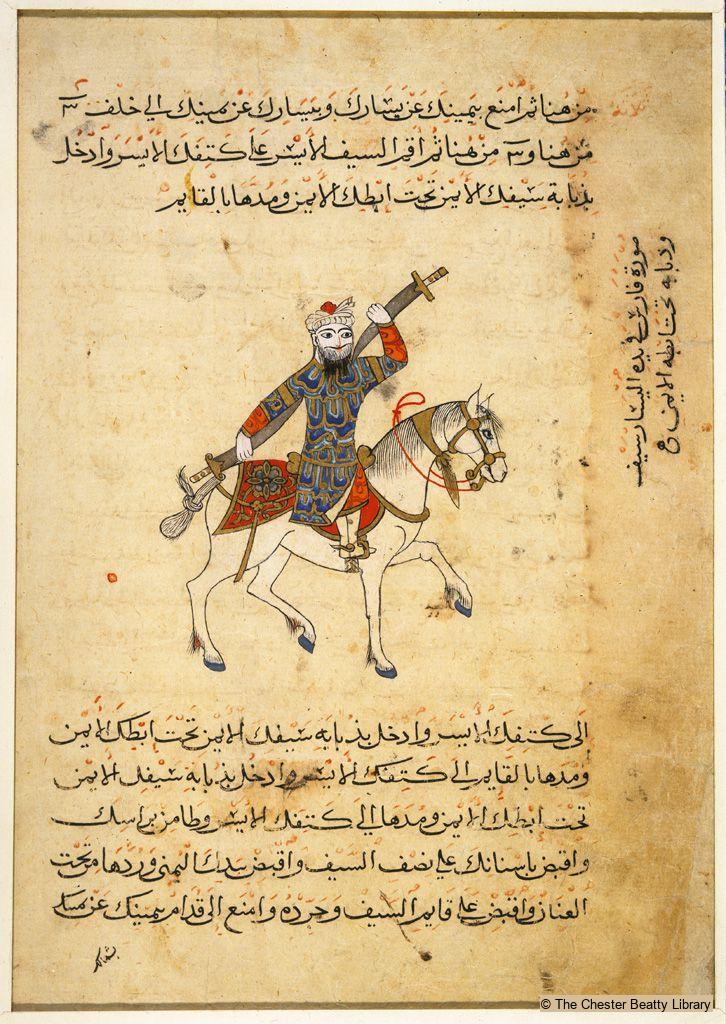 من هنا ثم امنع بيمينك عن يسارك وبيسارك عن يمينك الى خلف ٣
من هنا و٣ من هنا ثم اقم السيف الأيسر على كتفك الأيسر وادخل
بذبابة سيفك الأيمن تحت ابطك الأيمن ومدها بالقايم
صورة فارس في يده اليسار سيف
وذبابه تحت ابطه الايمن
الى كتفك الأيسر وادخل بذبابه سيفك الأيمن تحت ابطك الأيمن
ومدها بالقايم الى كتفك الأيسر وادخل بذبابة سيفك الأيمن
تحت ابطك الأيمن ومدها الى كتفك الأيسر وطامن براسك
واقبض باسنانك على نصف السيف واقبض بيدك اليمنى وردها من تحت
العنان واقبض على قايم السيف وجرده وامنع الى قدام بيمينك عن
© The Chester Beatty Library